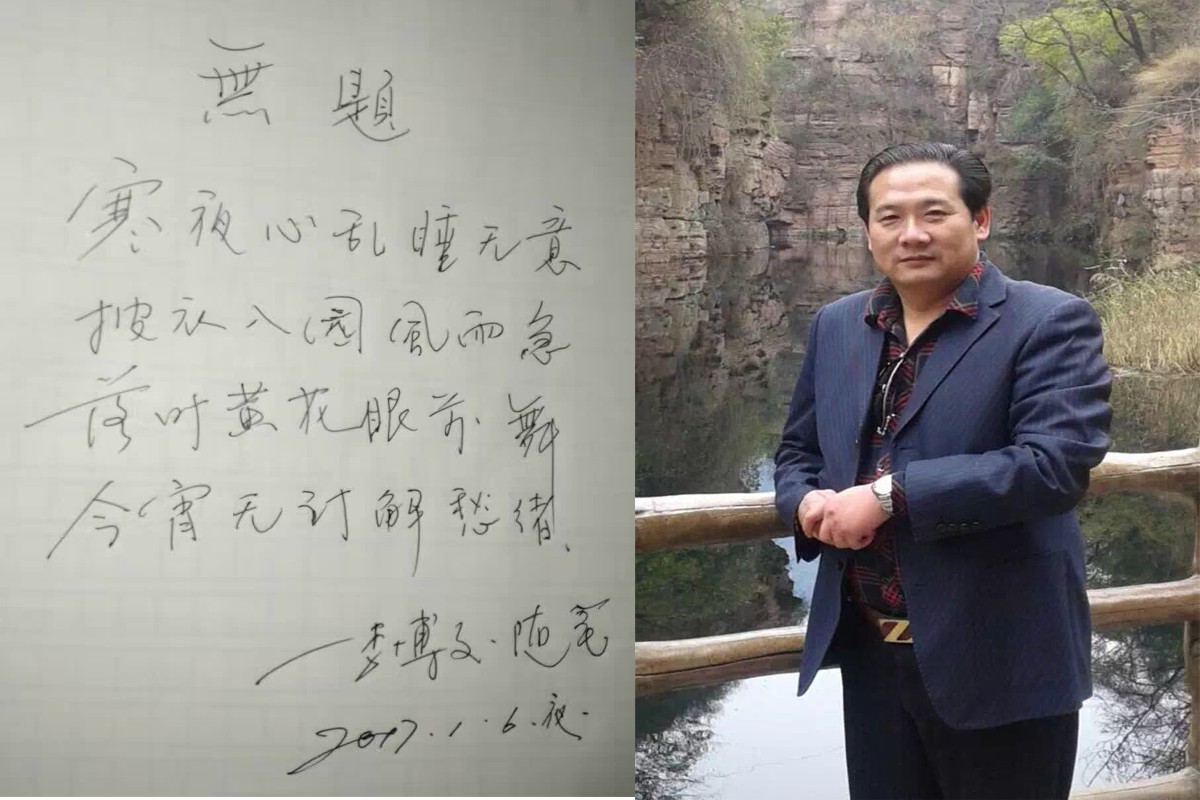 無題
寒夜心乱睡无意
披衣入園風雨急
落叶黄花眼前舞
今宵无计解愁绪、
李博文·随笔
2017.1.6.夜.